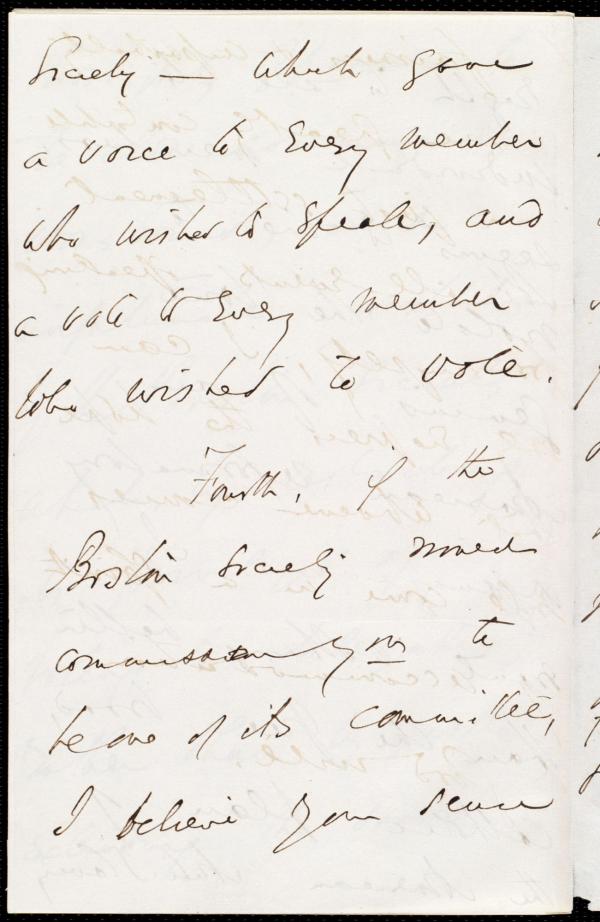 Society — which gave
a voice to every member
who wished to speak, and
a vote to every member
who wished to vote.
Fourth, if the
Boston Society moved
commission you to
be one of its committee,
I believe your sense